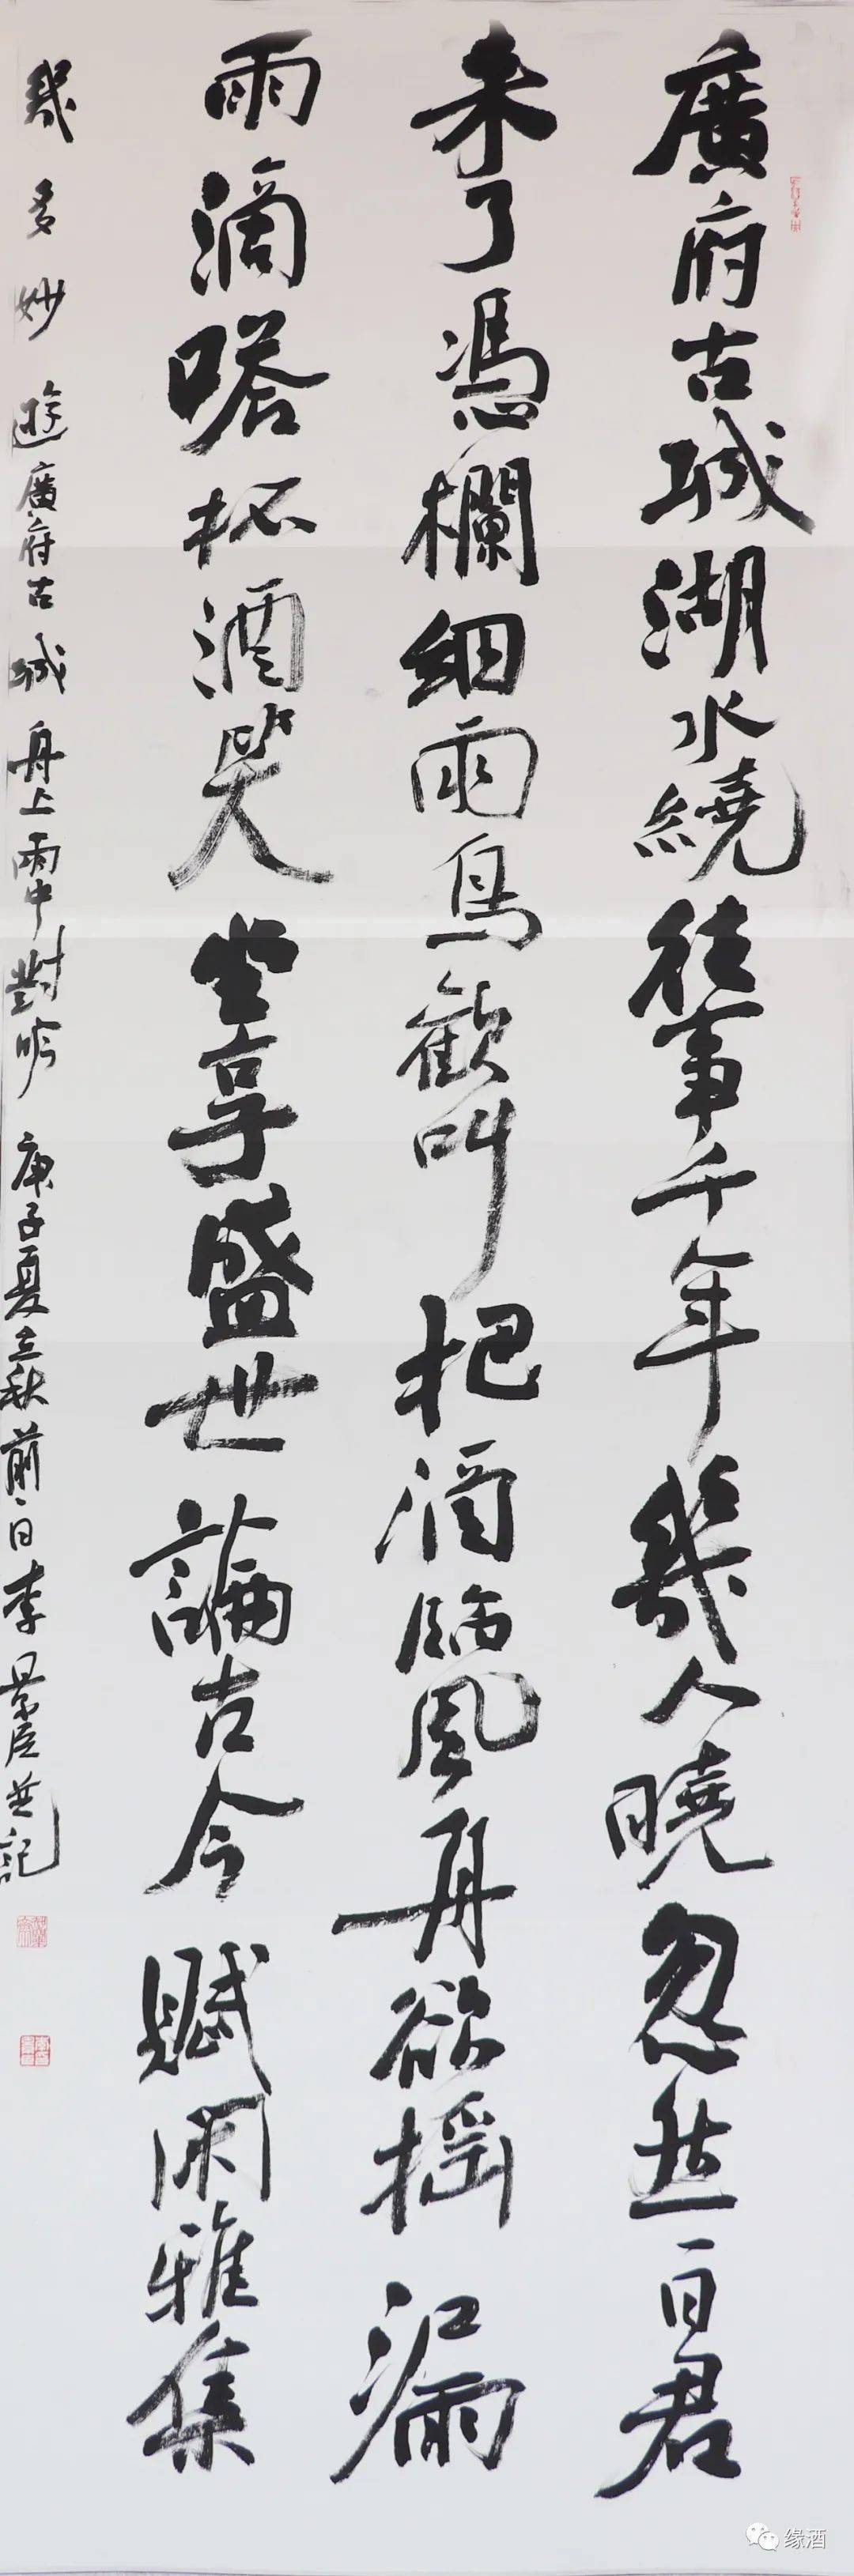 廣府古城湖水繞往事千年幾人曉忽然一日君
来了憑欄細雨鳥歡叫把酒臨風舟欲搖漏
雨滴嗒杯酒笑坐享盛世論古今賦闲雅集
幾多妙 遊廣府古城舟上雨中對吟 庚子夏立秋前一日李景臣並記
缘酒